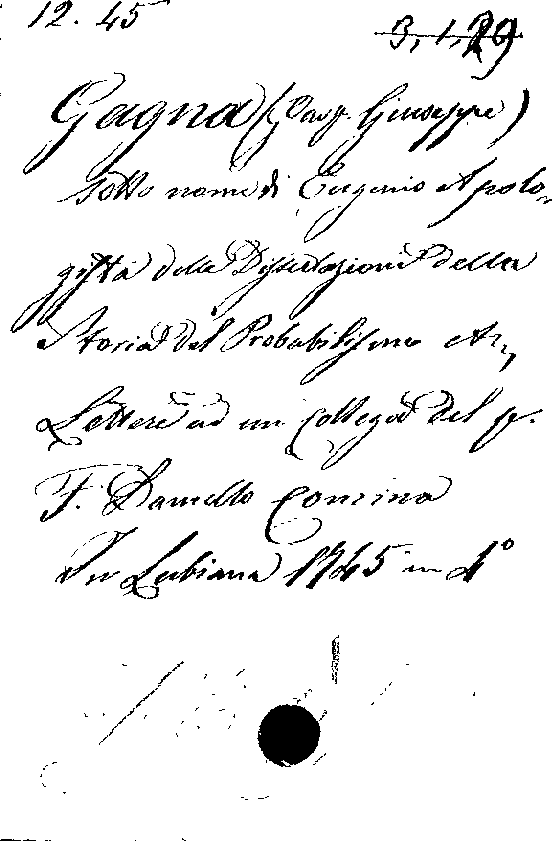 12. 45
3, 1, 29
Gagna (Gius. Giuseppe)
sotto nome di Eugenio Apolo-
gista delle Dissertazioni della
Storia del Probabilismo etc,
Lettere ad un collega del p.
F. Daniello Concina
In Lubiana 1745 in 4°